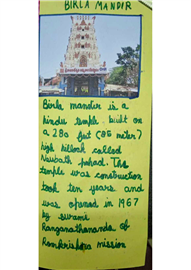 BIRLA MANDIR
Birla mandir is a
hindu temple built on
a 280 feet (85 meter)
high hillock called
Naubath pahad. The
temple was construction
took ten years and
was opened in 1967
by swami
Ranganathananda of
Ramkrishna mission